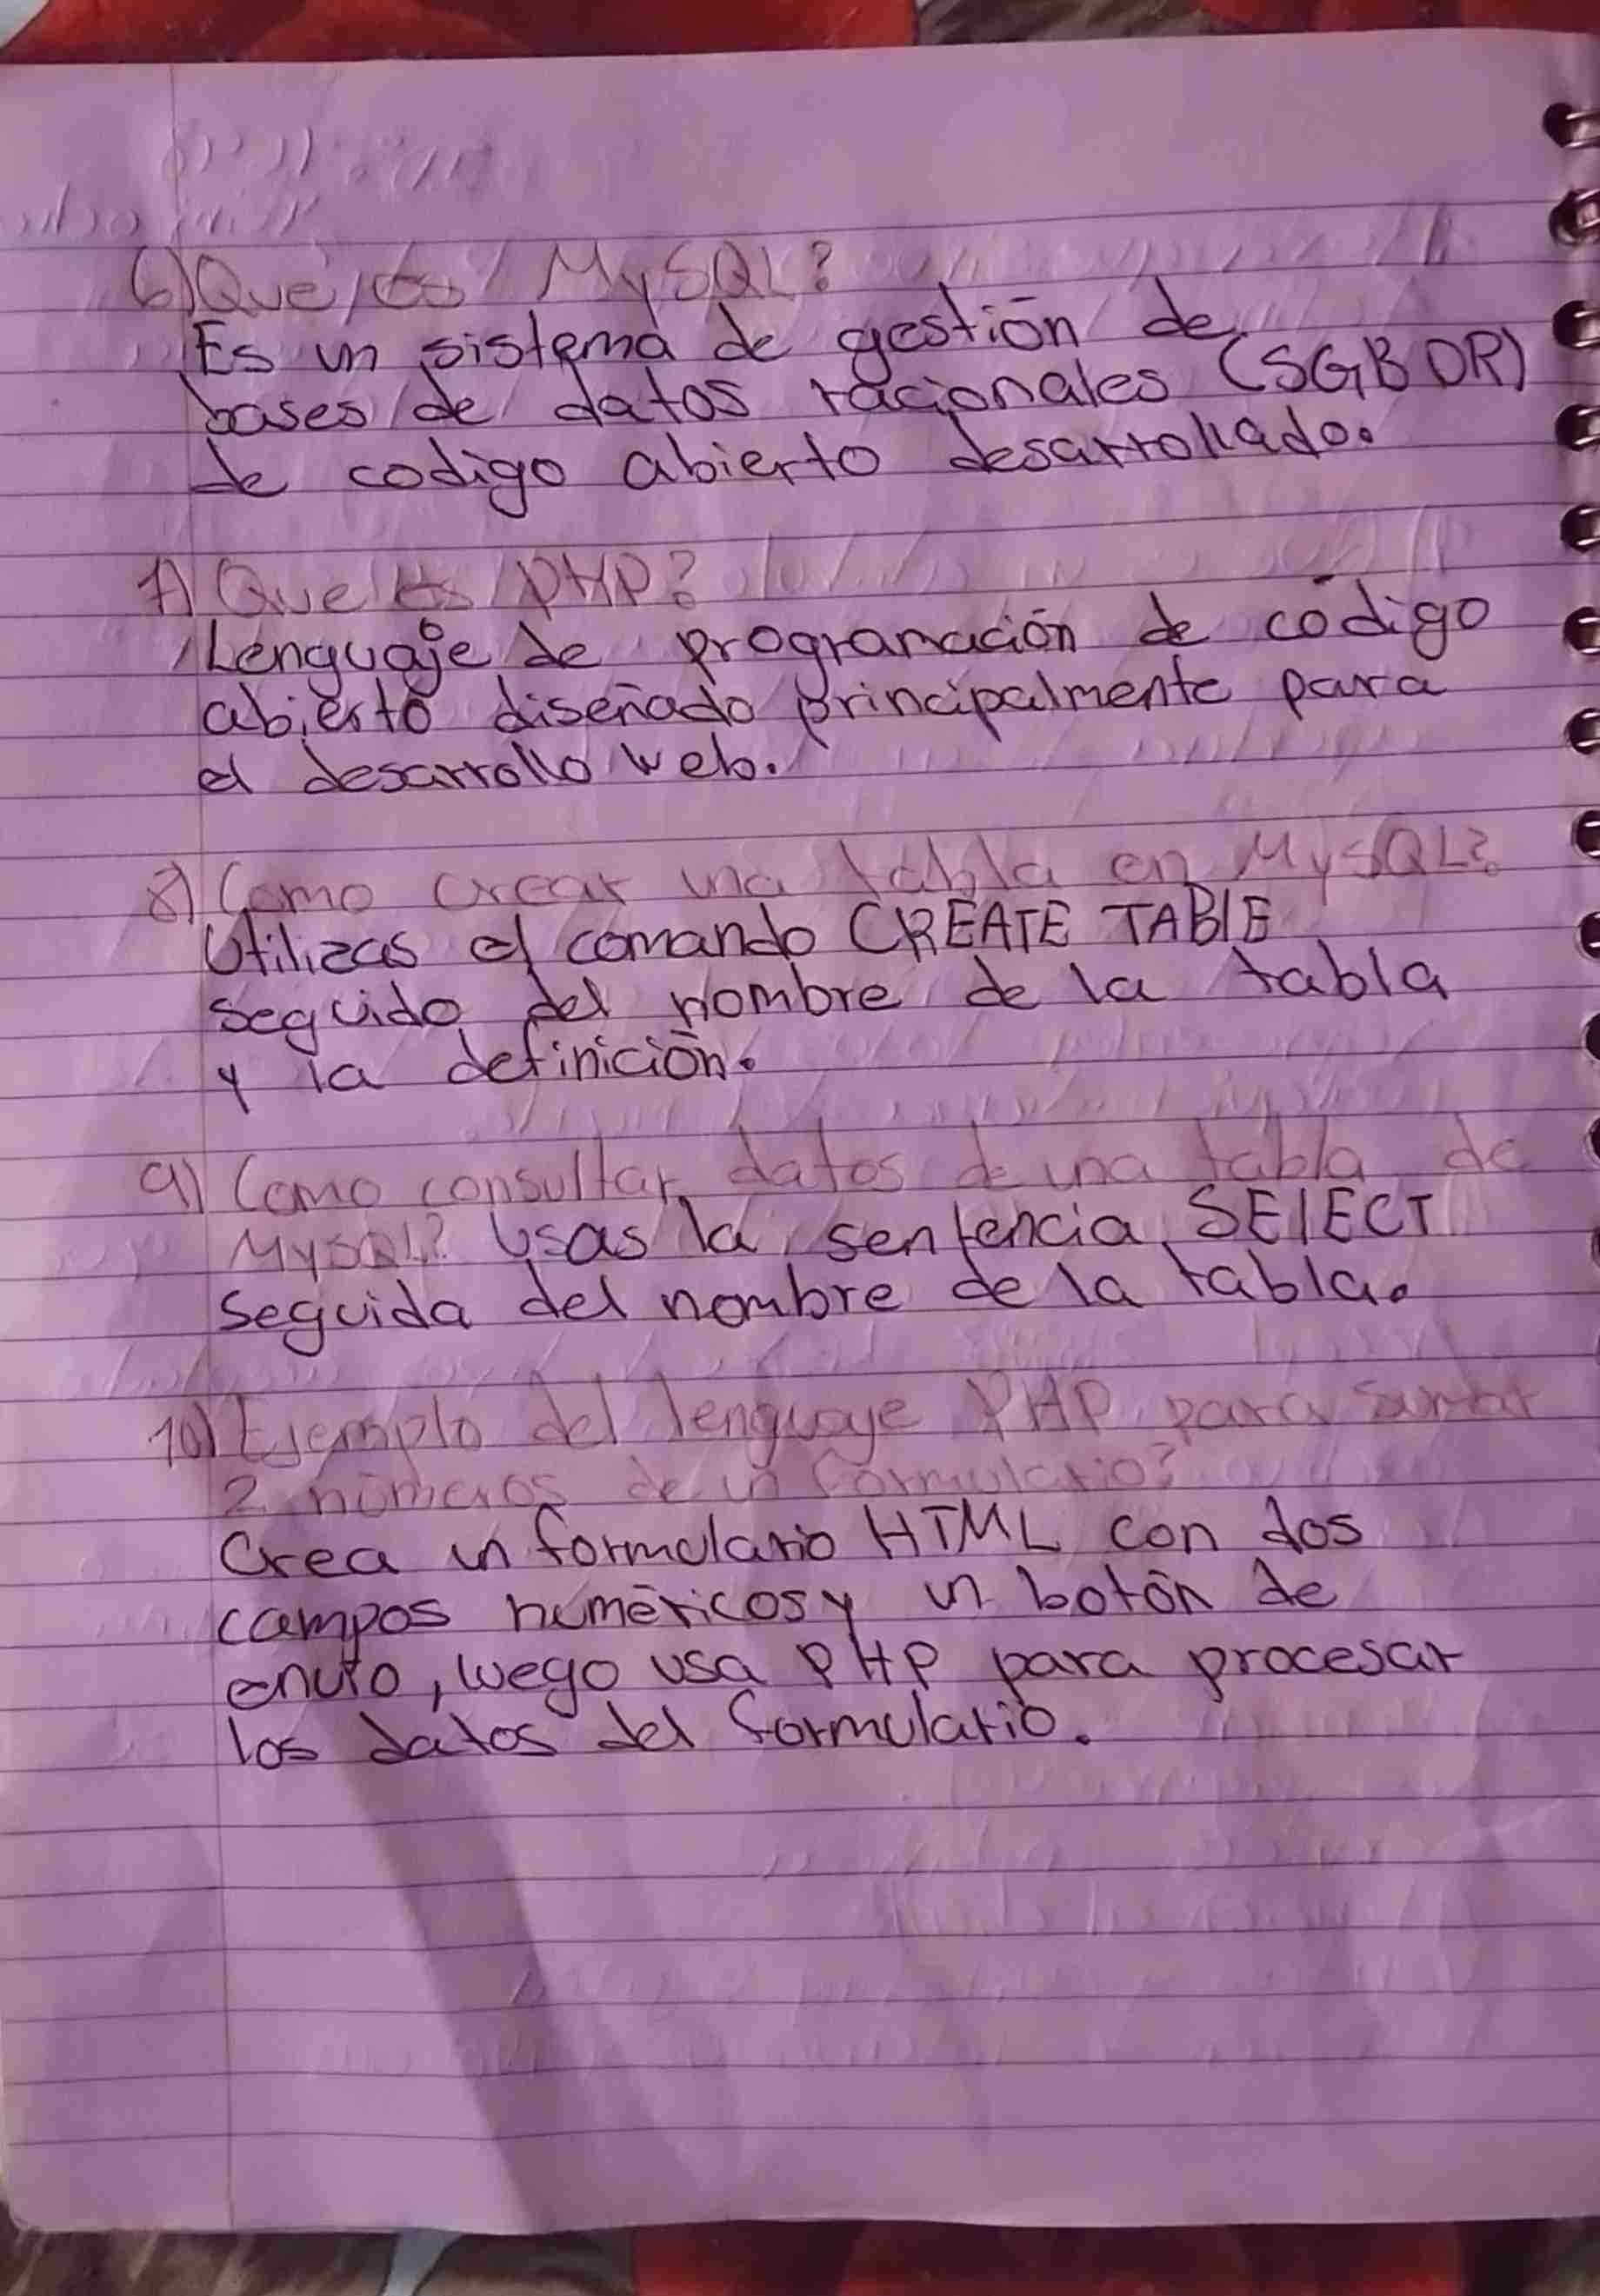 6) Que es MySQL?
Es un sistema de gestión de
bases de datos racionales (SGBDR)
de codigo abierto desarrollado.
7) Que es PHP?
Lenguaje de programación de código
abierto diseñado principalmente para
el desarrollo web.
8) Como crear una tabla en MySQL?
Utilizas el comando CREATE TABlE
seguido del nombre de la tabla
y la definición.
9) Como consultar datos de una tabla de
MySQL? Usas la sentencia SElECT
seguida del nombre de la tabla.
10) Ejemplo del lenguaje PHP para sumar
2 números de un formulario?
Crea un formulario HTML con dos
campos numéricos y un botón de
envío, luego usa PHP para procesar
los datos del formulario.